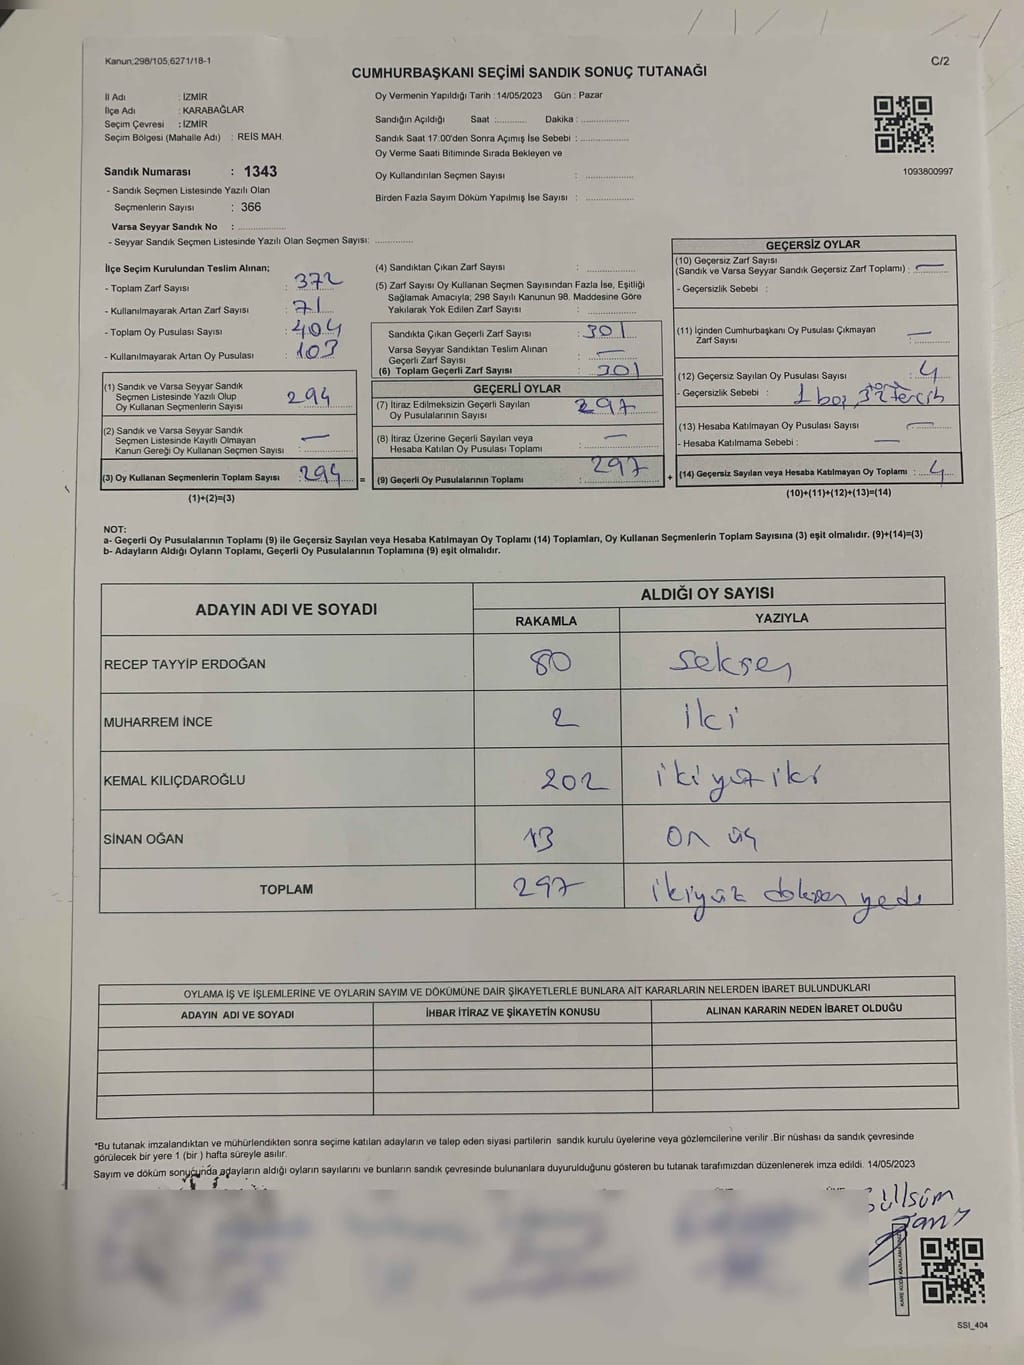 Kanun;298/105,6271/18-1
C/2
CUMHURBAŞKANI SEÇİMİ SANDIK SONUÇ TUTANAĞI
İl Adı : İZMİR
İlçe Adı : KARABAĞLAR
Seçim Çevresi : İZMİR
Seçim Bölgesi (Mahalle Adı) : REİS MAH.
Oy Vermenin Yapıldığı Tarih : 14/05/2023 Gün : Pazar
Sandığın Açıldığı Saat : ............ Dakika : ....................
Sandık Saat 17:00'den Sonra Açımış İse Sebebi : ....................
Oy Verme Saati Bitiminde Sırada Bekleyen ve
Oy Kullandırılan Seçmen Sayısı : ....................
Birden Fazla Sayım Döküm Yapılmış İse Sayısı : ....................
1093800997
Sandık Numarası : 1343
- Sandık Seçmen Listesinde Yazılı Olan
Seçmenlerin Sayısı : 366
Varsa Seyyar Sandık No : ....................
- Seyyar Sandık Seçmen Listesinde Yazılı Olan Seçmen Sayısı: ...............
İlçe Seçim Kurulundan Teslim Alınan;
- Toplam Zarf Sayısı : 372
- Kullanılmayarak Artan Zarf Sayısı : 71
- Toplam Oy Pusulası Sayısı : 404
- Kullanılmayarak Artan Oy Pusulası : 103
(1) Sandık ve Varsa Seyyar Sandık
Seçmen Listesinde Yazılı Olup
Oy Kullanan Seçmenlerin Sayısı : 294
(2) Sandık ve Varsa Seyyar Sandık
Seçmen Listesinde Kayıtlı Olmayan
Kanun Gereği Oy Kullanan Seçmen Sayısı : —
(3) Oy Kullanan Seçmenlerin Toplam Sayısı : 294 =
(1)+(2)=(3)
(4) Sandıktan Çıkan Zarf Sayısı : ....................
(5) Zarf Sayısı Oy Kullanan Seçmen Sayısından Fazla İse, Eşitliği
Sağlamak Amacıyla; 298 Sayılı Kanunun 98. Maddesine Göre
Yakılarak Yok Edilen Zarf Sayısı : ....................
Sandıkta Çıkan Geçerli Zarf Sayısı : 301
Varsa Seyyar Sandıktan Teslim Alınan
Geçerli Zarf Sayısı : —
(6) Toplam Geçerli Zarf Sayısı : 301
GEÇERLİ OYLAR
(7) İtiraz Edilmeksizin Geçerli Sayılan
Oy Pusulalarının Sayısı : 297
(8) İtiraz Üzerine Geçerli Sayılan veya
Hesaba Katılan Oy Pusulası Toplamı : —
(9) Geçerli Oy Pusulalarının Toplamı : 297 +
GEÇERSİZ OYLAR
(10) Geçersiz Zarf Sayısı
(Sandık ve Varsa Seyyar Sandık Geçersiz Zarf Toplamı) : —
- Geçersizlik Sebebi :
(11) İçinden Cumhurbaşkanı Oy Pusulası Çıkmayan
Zarf Sayısı : —
(12) Geçersiz Sayılan Oy Pusulası Sayısı : 4
- Geçersizlik Sebebi : 1 boş, 3 tercih
(13) Hesaba Katılmayan Oy Pusulası Sayısı : —
- Hesaba Katılmama Sebebi : —
(14) Geçersiz Sayılan veya Hesaba Katılmayan Oy Toplamı : 4
(10)+(11)+(12)+(13)=(14)
NOT:
a- Geçerli Oy Pusulalarının Toplamı (9) ile Geçersiz Sayılan veya Hesaba Katılmayan Oy Toplamı (14) Toplamları, Oy Kullanan Seçmenlerin Toplam Sayısına (3) eşit olmalıdır. (9)+(14)=(3)
b- Adayların Aldığı Oyların Toplamı, Geçerli Oy Pusulalarının Toplamına (9) eşit olmalıdır.
ADAYIN ADI VE SOYADI
ALDIĞI OY SAYISI
RAKAMLA YAZIYLA
RECEP TAYYİP ERDOĞAN 80 seksen
MUHARREM İNCE 2 iki
KEMAL KILIÇDAROĞLU 202 iki yüz iki
SİNAN OĞAN 13 on üç
TOPLAM 297 ikiyüz doksan yedi
OYLAMA İŞ VE İŞLEMLERİNE VE OYLARIN SAYIM VE DÖKÜMÜNE DAİR ŞİKAYETLERLE BUNLARA AİT KARARLARIN NELERDEN İBARET BULUNDUKLARI
ADAYIN ADI VE SOYADI İHBAR İTİRAZ VE ŞİKAYETİN KONUSU ALINAN KARARIN NEDEN İBARET OLDUĞU
*Bu tutanak imzalandıktan ve mühürlendikten sonra seçime katılan adayların ve talep eden siyasi partilerin sandık kurulu üyelerine veya gözlemcilerine verilir .Bir nüshası da sandık çevresinde
görülecek bir yere 1 (bir ) hafta süreyle asılır.
Sayım ve döküm sonucunda adayların aldığı oyların sayılarını ve bunların sandık çevresinde bulunanlara duyurulduğunu gösteren bu tutanak tarafımızdan düzenlenerek imza edildi. 14/05/2023
SSI_404